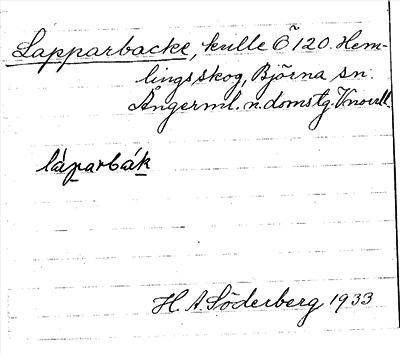 Lapparbacke, kulle 6~120. Hem-
lings skog, Björna sn.
Ångerml. n. domstg. Vnorrl.
láparbák
H. A. Söderberg 1933